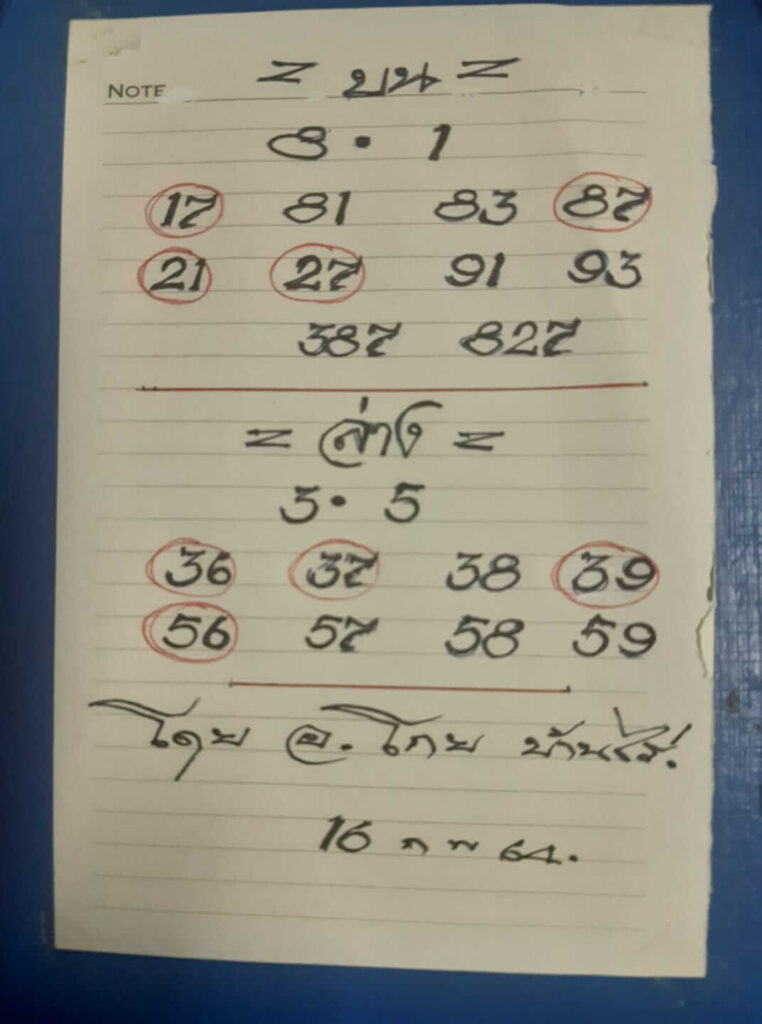 = บน =
NOTE
8 • 1
17 81 83 87
21 27 91 93
387 827
= ล่าง =
3 • 5
36 37 38 39
56 57 58 59
โดย อ. โกย บ้านไร่.
16 ก พ 64.